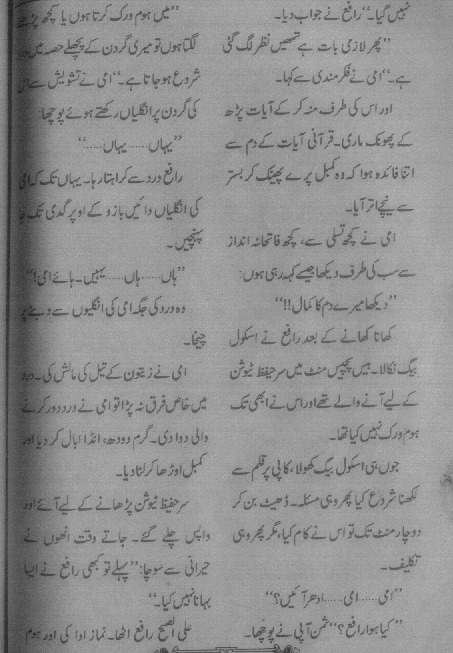 نہیں گیا۔‘‘ رافع نے جواب دیا۔
’’پھر لازمی بات ہے تمھیں نظر لگ گئی
ہے۔‘‘ امی نے فکر مندی سے کہا۔
اور اس کی طرف منہ کر کے آیات پڑھ
کے پھونک ماری۔ قرآنی آیات کے دم سے
اتنا فائدہ ہوا کہ وہ کمبل پرے پھینک کر بستر
سے نیچے اتر آیا۔
امی نے کچھ تسلی سے، کچھ فاتحانہ انداز
سے سب کی طرف دیکھا جیسے کہہ رہی ہوں:
’’دیکھا میرے دم کا کمال!!‘‘
کھانا کھانے کے بعد رافع نے اسکول
بیگ نکالا۔ بیس پچیس منٹ میں سر حفیظ ٹیوشن
کے لیے آنے والے تھے اور اس نے ابھی تک
ہوم ورک نہیں کیا تھا۔
جوں ہی اسکول بیگ کھولا، کاپی پر قلم سے
لکھنا شروع کیا پھر وہی مسئلہ۔ ڈھیٹ بن کر
دو چار منٹ تک تو اس نے کام کیا، مگر پھر وہی
تکلیف۔
’’امی...... امی...... ادھر آئیں؟‘‘
’’کیا ہوا رافع؟‘‘ ثمن آپی نے پوچھا۔
’’میں ہوم ورک کرتا ہوں یا کچھ پڑھنے
لگتا ہوں تو میری گردن کے پچھلے حصہ میں
شروع ہو جاتا ہے۔‘‘ امی نے تشویش سے اس
کی گردن پر انگلیاں رکھتے ہوئے پوچھا:
’’یہاں...... یہاں......‘‘
رافع درد سے کراہتا رہا۔ یہاں تک کہ امی
کی انگلیاں دائیں بازو کے اوپر گدی تک جا
پہنچیں۔
’’ہاں...... ہاں...... یہیں۔ ہائے امی!‘‘
وہ درد کی جگہ امی کی انگلیوں سے دبنے پر
چیخا۔
امی نے زیتون کے تیل کی مالش کی۔ درد
میں خاص فرق نہ پڑا تو امی نے درد دور کرنے
والی دوا دی۔ گرم دودھ، انڈا ابال کر دیا اور
کمبل اوڑھا کر لٹا دیا۔
سر حفیظ ٹیوشن پڑھانے کے لیے آئے اور
واپس چلے گئے۔ جاتے وقت انھوں نے
حیرانی سے سوچا: ’’پہلے تو کبھی رافع نے ایسا
بہانا نہیں کیا۔‘‘
علی الصبح رافع اٹھا۔ نماز ادا کی اور ہوم